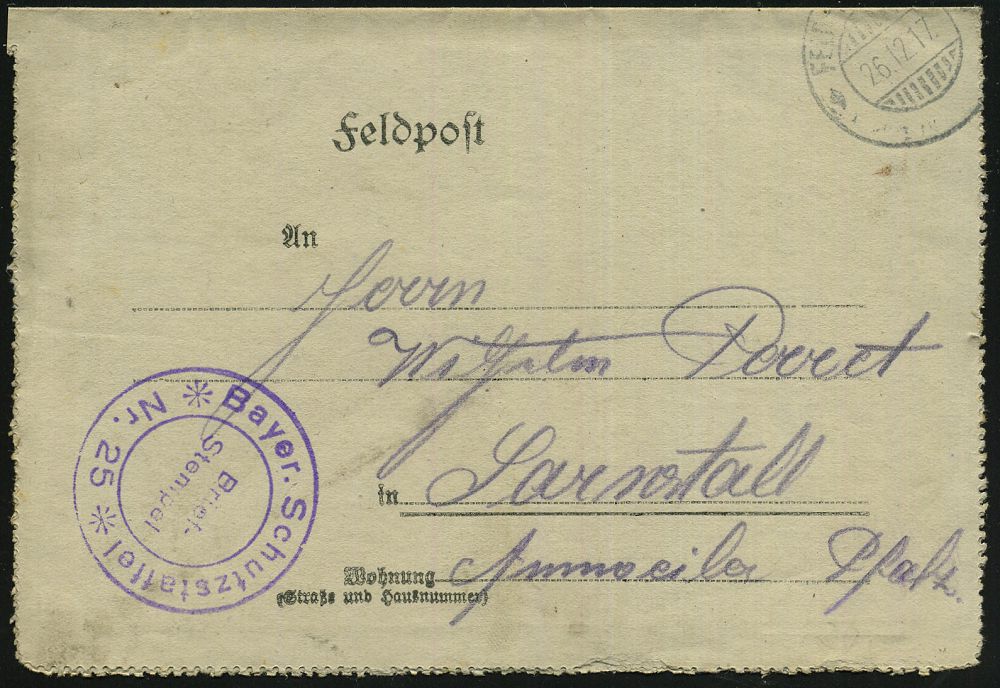 FELD
26.12.17.
Feldpost
An
Herrn
Wilhelm Perret
in Sarnstall
Wohnung Annweiler Pfalz.
(Straße und Hausnummer)
Bayer. Schutzstaffel * Nr. 25 *
Brief-
Stempel